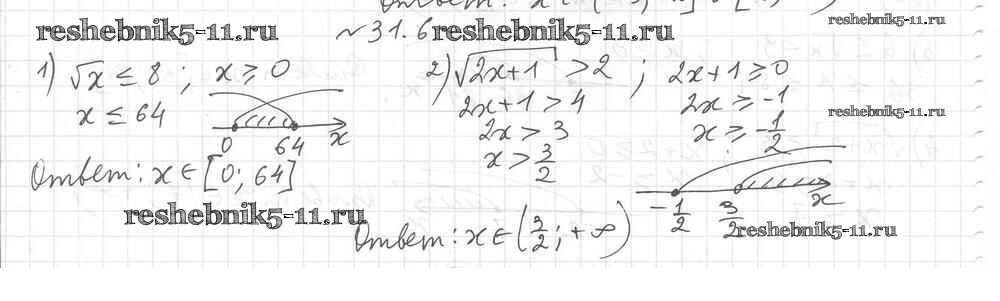 reshebnik5-11.ru № 31.6 reshebnik5-11.ru reshebnik5-11.ru
1) √x ≤ 8 ; x ≥ 0
x ≤ 64
0 64 x
Ответ: x ∈ [0; 64]
2) √(2x+1) > 2 ; 2x+1 ≥ 0
2x+1 > 4 2x ≥ -1 reshebnik5-11.ru
2x > 3 x ≥ -1/2
x > 3/2
-1/2 3/2 x
reshebnik5-11.ru reshebnik5-11.ru
Ответ: x ∈ (3/2; +∞)